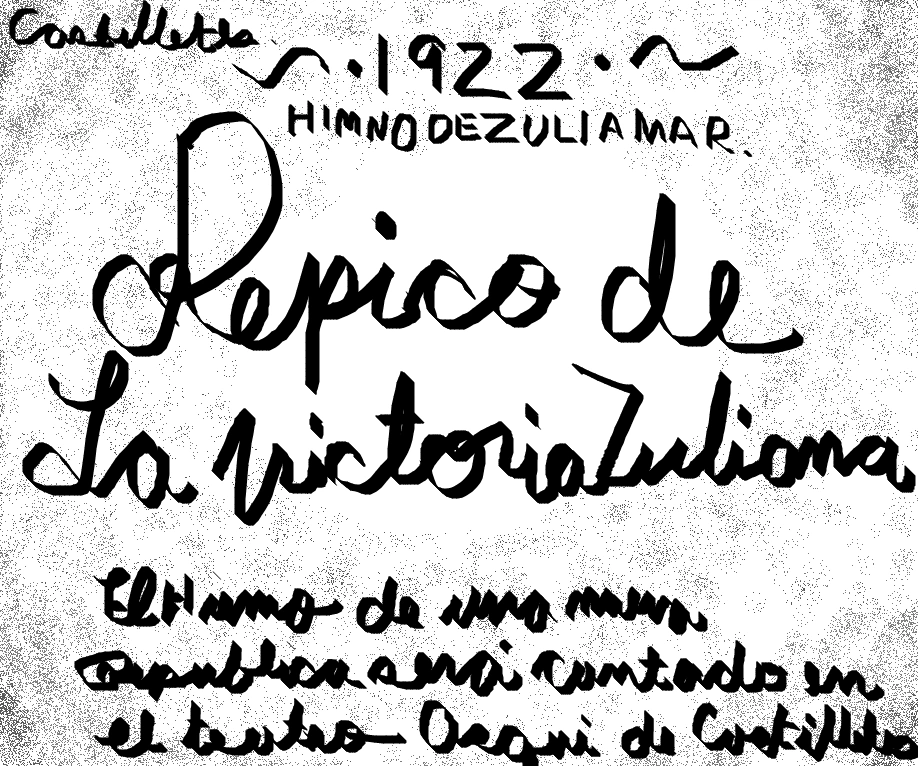 Castilletes
~ · 1922 · ~
HIMNO DE ZULIAMAR.
Repico de
La victoria Zuliana
El Himno de una nueva
republica será cantado en
el teatro de Castilletes